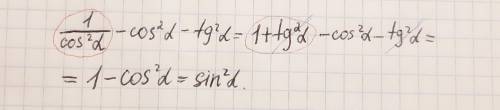 1/cos²α - cos²α - tg²α = 1 + tg²α - cos²α - tg²α =
= 1 - cos²α = sin²α.